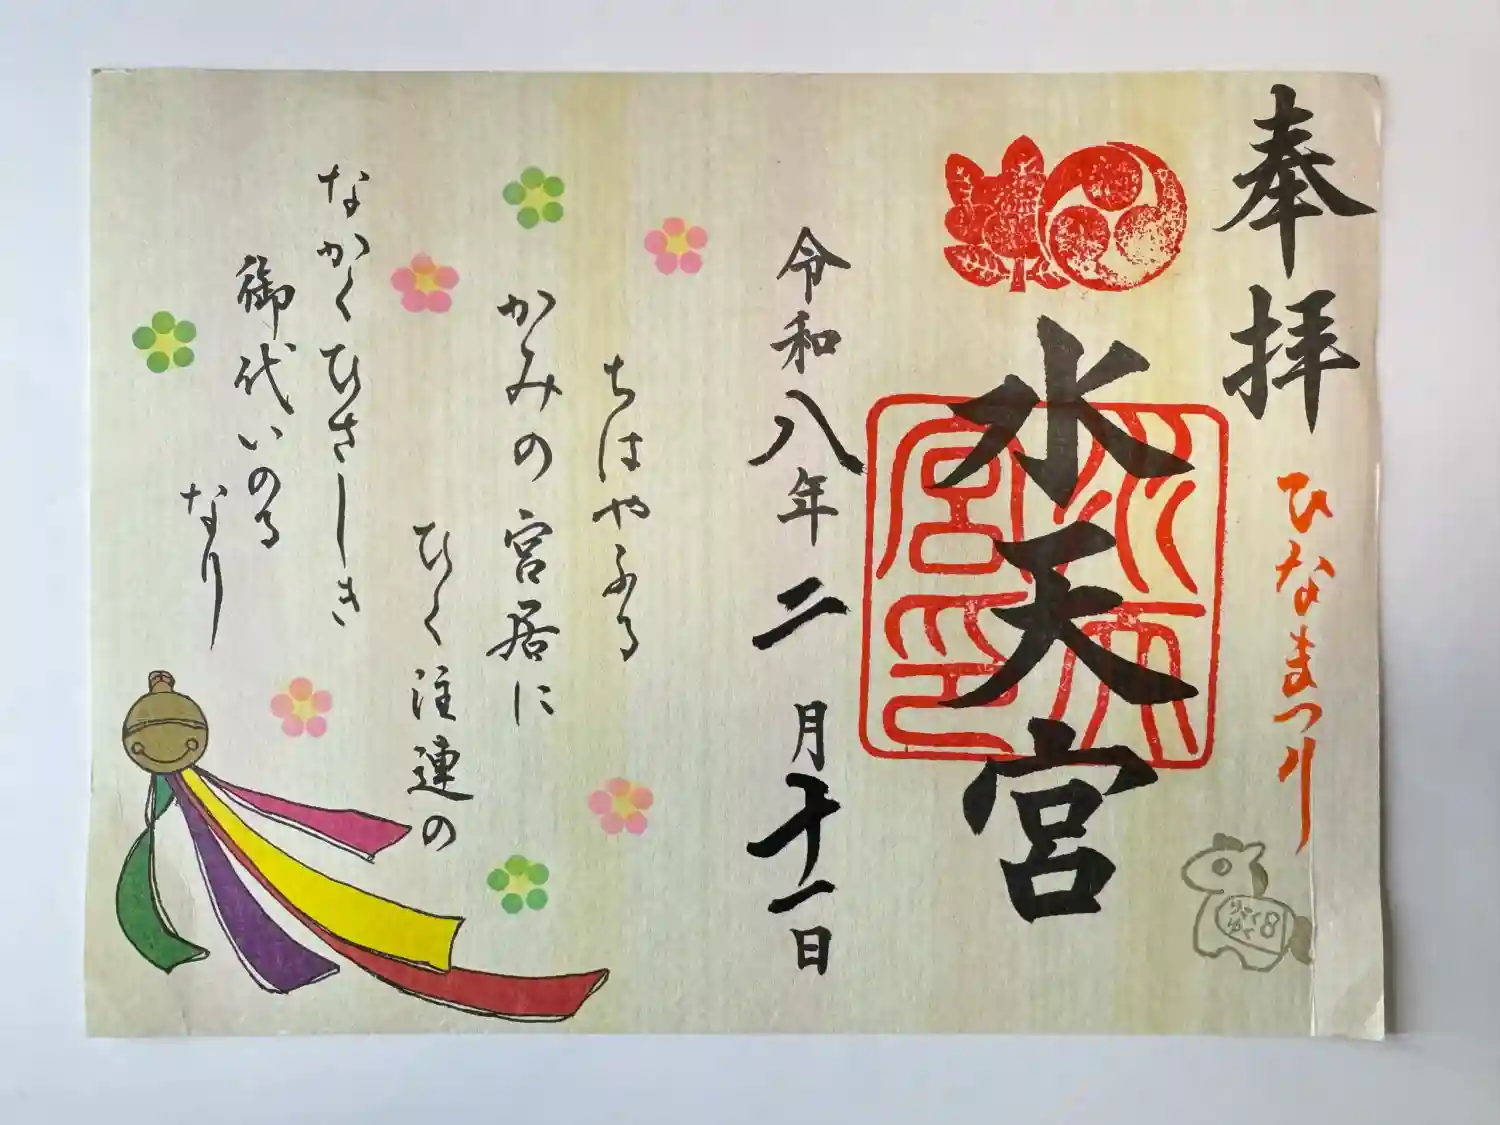 奉拝
ひなまつり
水天宮
水天宮印
令和八年二月十一日
ちはやふる
かみの宮居に
ひく注連の
なかくひさしき
御代いのる
なり